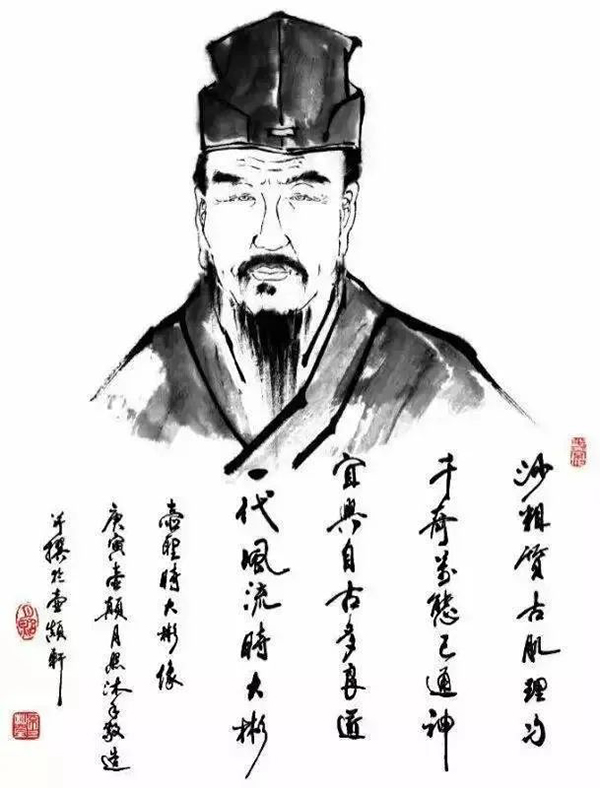 沙粗質古肌理匀
千奇萬態已通神
宜興自古多良
一代風流時大彬
壺聖時大彬像
庚寅壺顛月照沐手敬造
并撰於壺顛軒